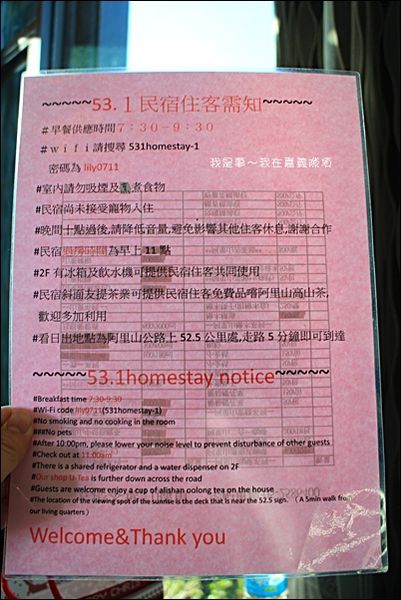 ~~~~~53.1民宿住客需知~~~~~
#早餐供應時間7:30-9:30
#wifi請搜尋 531homestay-1
密碼為 lily0711
我是夢~我在嘉義
#室內請勿吸煙及烹煮食物
#民宿尚未接受寵物入住
#晚間十點過後,請降低音量,避免影響其他住客休息,謝謝合作
#民宿退房時間為早上 11 點
#2F 有冰箱及飲水機可提供民宿住客共同使用
#民宿斜面友提茶業可提供民宿住客免費品嚐阿里山高山茶,
歡迎多加利用
#看日出地點為阿里山公路上 52.5 公里處,走路 5 分鐘即可到達
~~~~~53.1homestay notice~~~~~
#Breakfast time 7:30-9:30
#Wi-Fi code lily0711(531homestay-1)
#No smoking and no cooking in the room
###No pets
#After 10:00pm, please lower your noise level to prevent disturbance of other guests
#Check out at 11:00am
#There is a shared refrigerator and a water dispenser on 2F
#Our shop U-Tea is further down across the road
#Guests are welcome enjoy a cup of alishan oolong tea on the house
#The location of the viewing spot of the sunrise is the deck that is near the 52.5 sign. （A 5min walk from
our living quarters）
Welcome&Thank you